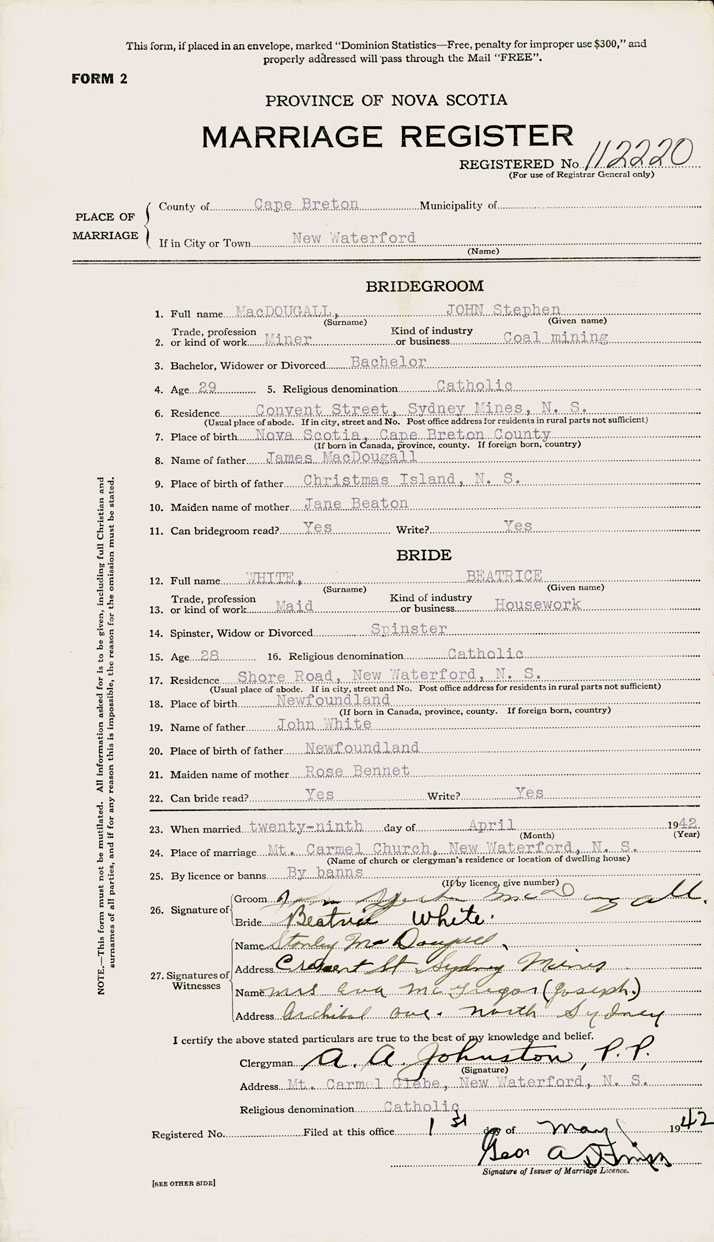 This form, if placed in an envelope, marked "Dominion Statistics—Free, penalty for improper use $300," and
properly addressed will pass through the Mail "FREE".
FORM 2
PROVINCE OF NOVA SCOTIA
MARRIAGE REGISTER
REGISTERED No. 112220
(For use of Registrar General only)
PLACE OF MARRIAGE
County of Cape Breton Municipality of
If in City or Town New Waterford
(Name)
BRIDEGROOM
1. Full name MacDOUGALL, JOHN Stephen
(Surname) (Given name)
2. Trade, profession or kind of work Miner Kind of industry or business Coal mining
3. Bachelor, Widower or Divorced Bachelor
4. Age 29 5. Religious denomination Catholic
6. Residence Convent Street, Sydney Mines, N. S.
(Usual place of abode. If in city, street and No. Post office address for residents in rural parts not sufficient)
7. Place of birth Nova Scotia, Cape Breton County
(If born in Canada, province, county. If foreign born, country)
8. Name of father James MacDougall
9. Place of birth of father Christmas Island, N. S.
10. Maiden name of mother Jane Beaton
11. Can bridegroom read? Yes Write? Yes
BRIDE
12. Full name WHITE, BEATRICE
(Surname) (Given name)
13. Trade, profession or kind of work Maid Kind of industry or business Housework
14. Spinster, Widow or Divorced Spinster
15. Age 28 16. Religious denomination Catholic
17. Residence Shore Road, New Waterford, N. S.
(Usual place of abode. If in city, street and No. Post office address for residents in rural parts not sufficient)
18. Place of birth Newfoundland
(If born in Canada, province, county. If foreign born, country)
19. Name of father John White
20. Place of birth of father Newfoundland
21. Maiden name of mother Rose Bennet
22. Can bride read? Yes Write? Yes
23. When married twenty-ninth day of April 1942
(Month) (Year)
24. Place of marriage Mt. Carmel Church, New Waterford, N. S.
(Name of church or clergyman's residence or location of dwelling house)
25. By licence or banns By banns
(If by licence, give number)
26. Signature of
Groom John McDougall.
Bride Beatrice White.
27. Signatures of Witnesses
Name Stanley McDougall,
Address Cresent St Sydney Mines
Name Mrs Eva McGregor (Joseph.)
Address Archibal Ave. North Sydney
I certify the above stated particulars are true to the best of my knowledge and belief.
Clergyman A. A. Johnston, P.P.
(Signature)
Address Mt. Carmel Glebe, New Waterford, N. S.
Religious denomination Catholic
Registered No. Filed at this office 1st day of May 1942
Geo A
Signature of Issuer of Marriage Licence.
[SEE OTHER SIDE]
NOTE.—This form must not be mutilated. All information asked for is to be given, including full Christian and
surnames of all parties, and if for any reason this is impossible, the reason for the omission must be stated.